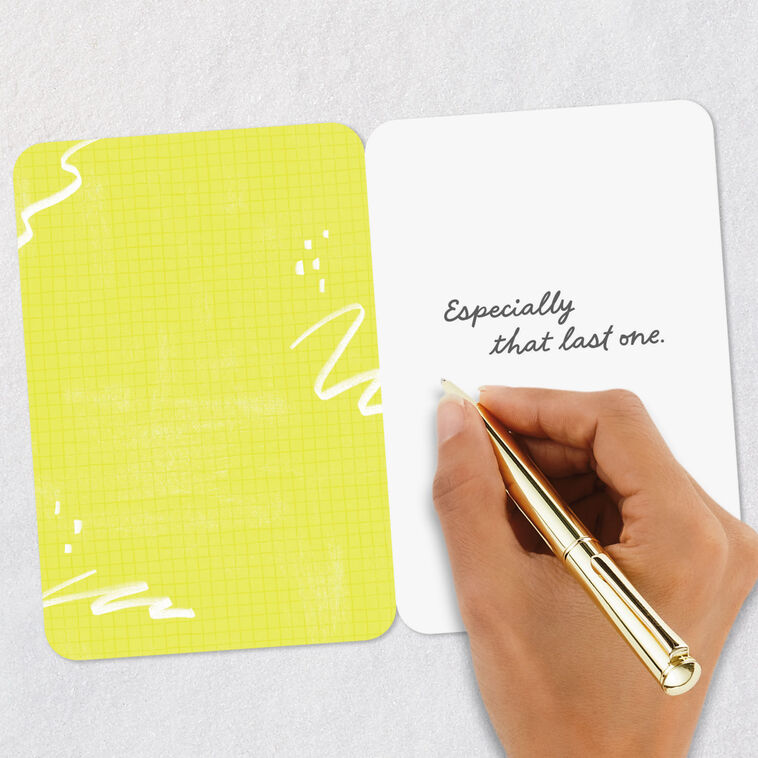 Especially
that last one.